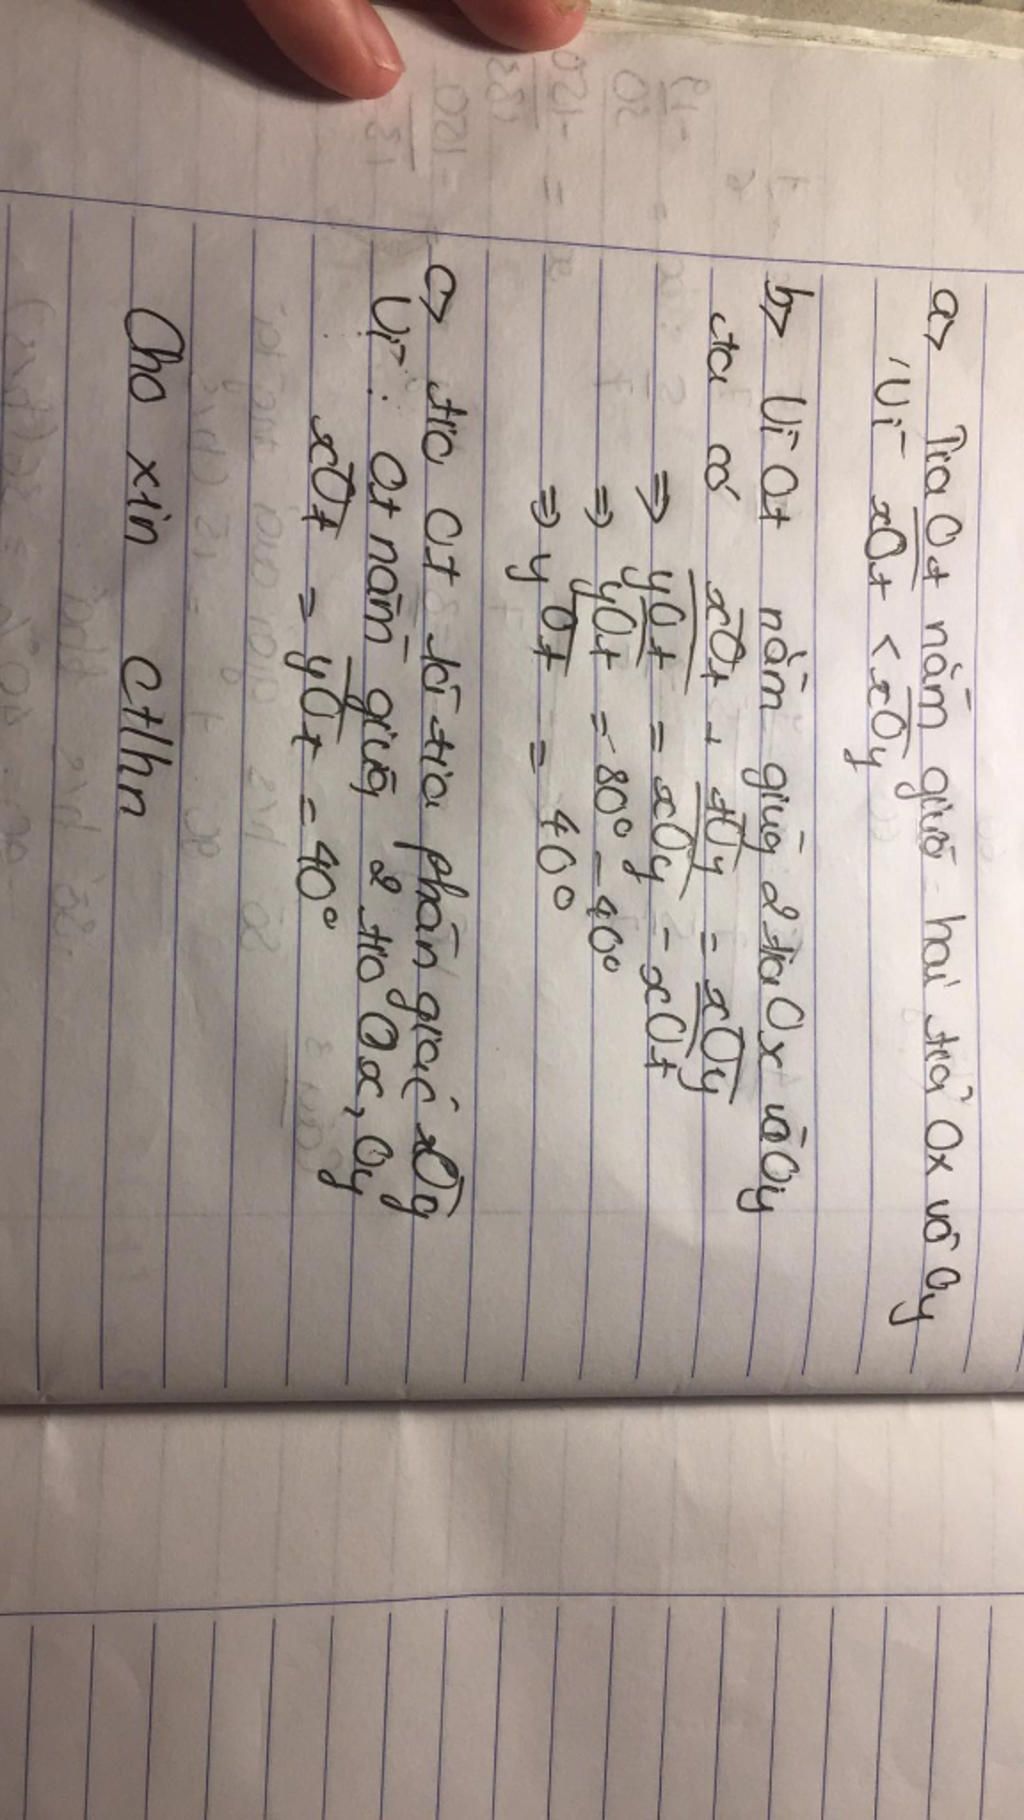 a> Tia Ot nằm giữa hai tia Ox và Oy
Vì xOt < xOy
b> Vì Ot nằm giữa 2 tia Ox và Oy
ta có xOt + tOy = xOy
⇒ yOt = xOy - xOt
⇒ yOt = 80° - 40°
⇒ yOt = 40°
c> tia Ot là tia phân giác xOy
Vì: Ot nằm giữa 2 tia Ox, Oy
xOt = yOt = 40°
Cho xin ctlhn